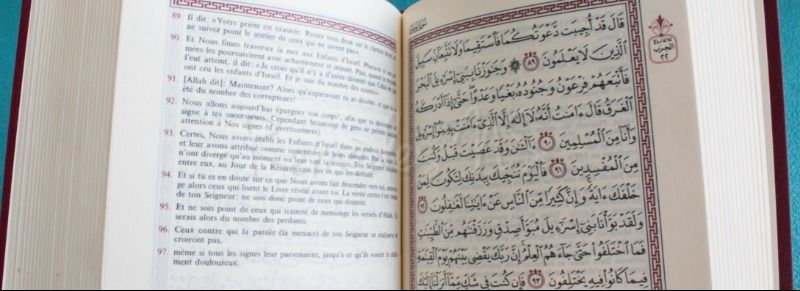 89. Il dit: «Votre prière est exaucée. Restez tous deux sur le chemin droit, et
ne suivez point le sentier de ceux qui ne savent pas».
90. Et Nous fîmes traverser la mer aux Enfants d'Israël. Pharaon et ses
mées les poursuivirent avec acharnement et inimitié. Puis, quand la
l'eut atteint, il dit: «Je crois qu'il n'y a d'autre divinité que Celui en
ont cru les enfants d'Israël. Et je suis du nombre des soumis».
91. [Allah dit]: Maintenant? Alors qu'auparavant tu as désobéi et que tu
été du nombre des corrupteurs!
92. Nous allons aujourd'hui épargner ton corps, afin que tu deviennes
signe à tes successeurs. Cependant beaucoup de gens ne prêtent
attention à Nos signes (d'avertissement).
93. Certes, Nous avons établi les Enfants d'Israël dans un endroit
et leur avons attribué comme nourriture de bons aliments. Par la suite, ils
n'ont divergé qu'au moment où leur vint la science. Ton Seigneur
entre eux, au Jour de la Résurrection sur ce qui les divisait.
94. Et si tu es en doute sur ce que Nous avons fait descendre vers toi,
ge alors ceux qui lisent le Livre révélé avant toi. La vérité certes t'est venue
de ton Seigneur: ne sois donc point de ceux qui doutent.
95. Et ne sois point de ceux qui traitent de mensonge les versets d'Allah. Tu
serais alors du nombre des perdants.
96. Ceux contre qui la parole (la menace) de ton Seigneur se réalisera ne
croiront pas,
97. même si tous les signes leur parvenaient, jusqu'à ce qu'ils voient le
ment douloureux.
قَالَ قَدْ أُجِيبَت دَّعْوَتُكُمَا فَاسْتَقِيمَا وَلَا تَتَّبِعَانِّ سَبِيلَ
الَّذِينَ لَا يَعْلَمُونَ ٨٩ وَجَاوَزْنَا بِبَنِي إِسْرَائِيلَ الْبَحْرَ
فَأَتْبَعَهُمْ فِرْعَوْنُ وَجُنُودُهُ بَغْيًا وَعَدْوًا حَتَّى إِذَا أَدْرَكَهُ
الْغَرَقُ قَالَ ءَامَنتُ أَنَّهُ لَا إِلَٰهَ إِلَّا الَّذِي ءَامَنَتْ بِهِ بَنُو إِسْرَائِيلَ
وَأَنَا مِنَ الْمُسْلِمِينَ ٩٠ ءَآلْـَٰنَ وَقَدْ عَصَيْتَ قَبْلُ وَكُنتَ
مِنَ الْمُفْسِدِينَ ٩١ فَالْيَوْمَ نُنَجِّيكَ بِبَدَنِكَ لِتَكُونَ لِمَنْ
خَلْفَكَ ءَايَةً وَإِنَّ كَثِيرًا مِّنَ النَّاسِ عَنْ ءَايَاتِنَا لَغَافِلُونَ ٩٢
وَلَقَدْ بَوَّأْنَا بَنِي إِسْرَائِيلَ مُبَوَّأَ صِدْقٍ وَرَزَقْنَاهُم مِّنَ الطَّيِّبَاتِ
فَمَا اخْتَلَفُوا حَتَّى جَاءَهُمُ الْعِلْمُ إِنَّ رَبَّكَ يَقْضِي بَيْنَهُمْ يَوْمَ الْقِيَامَةِ
فِيمَا كَانُوا فِيهِ يَخْتَلِفُونَ ٩٣ فَإِن كُنتَ فِي شَكٍّ مِّمَّا أَنزَلْنَا إِلَيْكَ
الحزب
٢٢